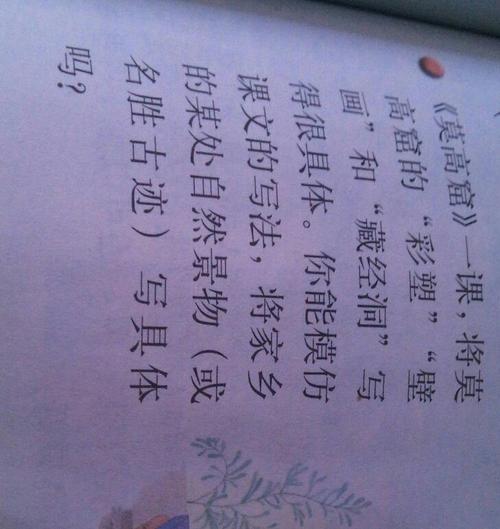 《莫高窟》一课，将莫
高窟的“彩塑”“壁
画”和“藏经洞”写
得很具体。你能模仿
课文的写法，将家乡
的某处自然景物（或
名胜古迹）写具体
吗？